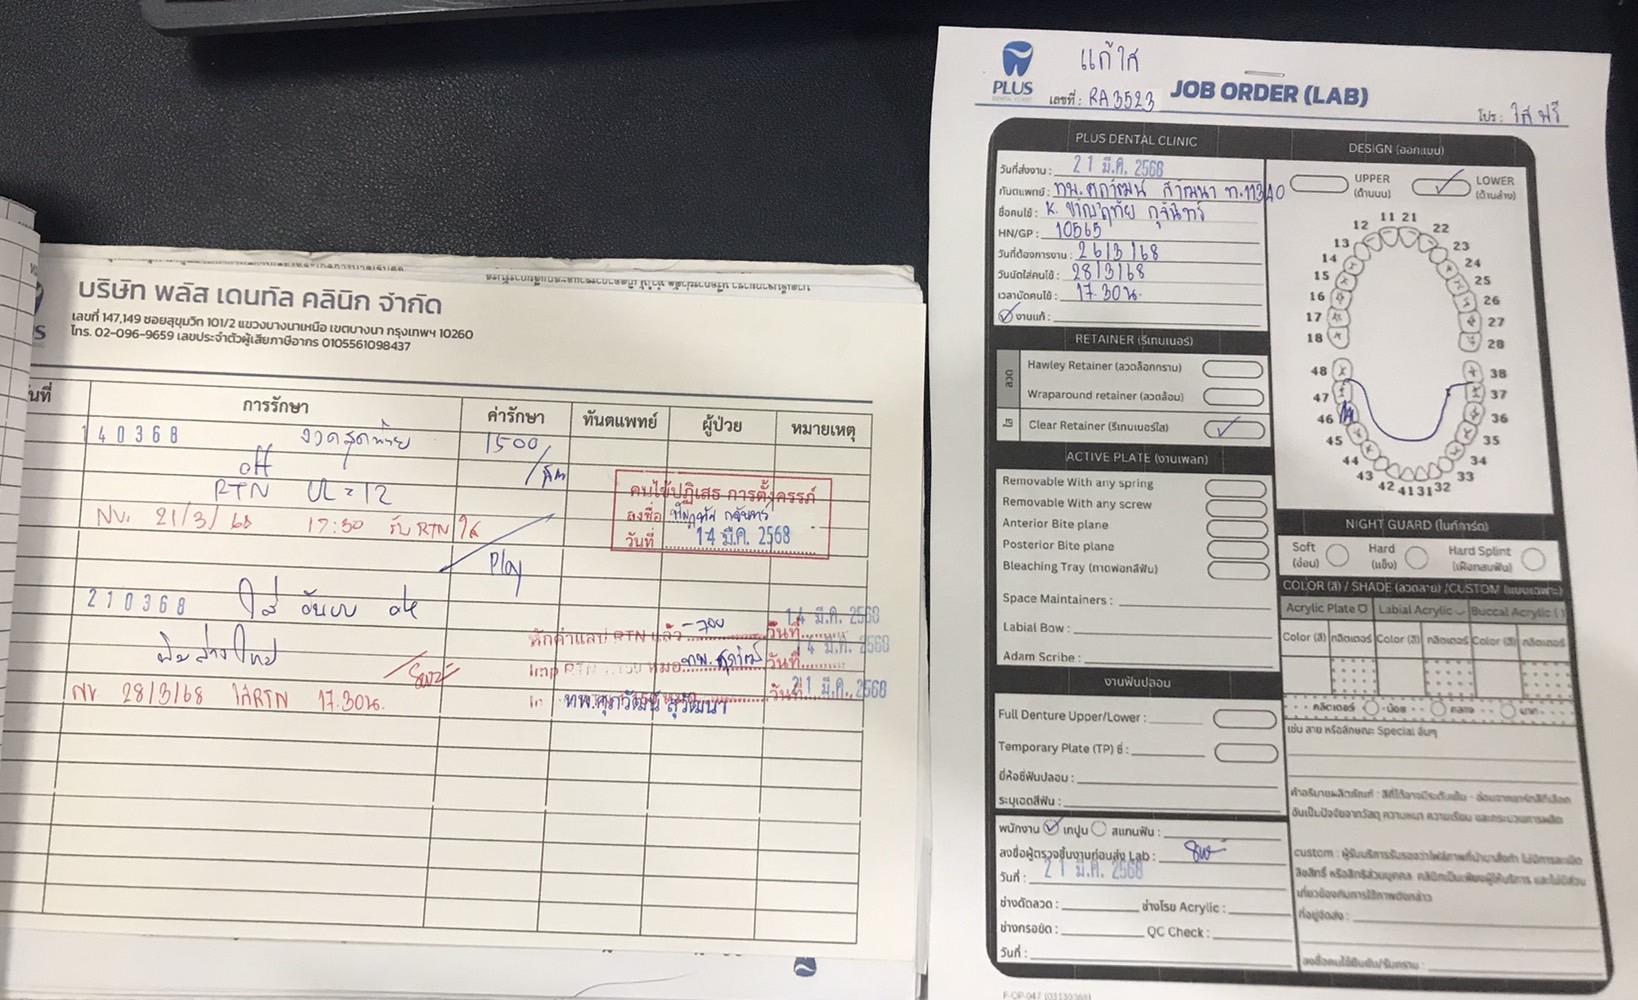 บริษัท พลัส เดนทัล คลินิก จำกัด
เลขที่ 147,149 ซอยสุขุมวิท 101/2 แขวงบางนาเหนือ เขตบางนา กรุงเทพฯ 10260
โทร. 02-096-9659 เลขประจำตัวผู้เสียภาษีอากร 0105561098437
การรักษา ค่ารักษา ทันตแพทย์ ผู้ป่วย หมายเหตุ
140368 งวดสุดท้าย 1500/
off
RTN UL = 12
NV. 21/3/68 17:30 รับ RTN ใส
คนไข้ปฏิเสธ การตั้งครรภ์
ลงชื่อ
วันที่ 14 มี.ค. 2568
Play
210368 ใส่ อันบน
พิมพ์ล่างใหม่
หักค่าแลป RTN แล้ว -700 วันที่ 14 มี.ค. 2568
วันที่ 14 มี.ค. 2568
ทพ.ศุภวัฒน์ สุวัฒนา วันที่ 21 มี.ค. 2568
NV 28/3/68 ใส่RTN 17.30น.
PLUS
DENTAL CLINIC
แก้ใส
เลขที่ : RA3523
JOB ORDER (LAB)
โปร : ใส ฟรี
PLUS DENTAL CLINIC
วันที่ส่งงาน : 21 มี.ค. 2568
ทันตแพทย์ : ทพ.ศุภวัฒน์ สุวัฒนา ท.11340
ชื่อคนไข้ : K.
HN/GP : 10565
วันที่ต้องการงาน : 26/3/68
วันนัดใส่คนไข้ : 28/3/68
เวลานัดคนไข้ : 17.30น.
งานแก้ :
RETAINER (รีเทนเนอร์)
ลวด
Hawley Retainer (ลวดล็อกกราม)
Wraparound retainer (ลวดล้อม)
ใส
Clear Retainer (รีเทนเนอร์ใส)
ACTIVE PLATE (งานเพลท)
Removable With any spring
Removable With any screw
Anterior Bite plane
Posterior Bite plane
Bleaching Tray (ถาดฟอกสีฟัน)
Space Maintainers :
Labial Bow :
Adam Scribe :
งานฟันปลอม
Full Denture Upper/Lower :
Temporary Plate (TP) ซี่ :
ยี่ห้อซี่ฟันปลอม :
ระบุเฉดสีฟัน :
พนักงาน เทปูน สแกนฟัน :
ลงชื่อผู้ตรวจชิ้นงานก่อนส่ง Lab :
วันที่ : 21 มี.ค. 2568
ช่างดัดลวด : ช่างโรย Acrylic :
ช่างกรอขัด : QC Check :
วันที่ :
DESIGN (ออกแบบ)
UPPER (ด้านบน)
LOWER (ด้านล่าง)
11 21
12 22
13 23
14 24
15 25
16 26
17 27
18 28
48 38
47 37
46 36
45 35
44 34
43 33
42 41 31 32
NIGHT GUARD (ไนท์การ์ด)
Soft (อ่อน) Hard (แข็ง) Hard Splint (เฝือกสบฟัน)
COLOR (สี) / SHADE (ลวดลาย) /CUSTOM (แบบเฉพาะ)
Acrylic Plate Labial Acrylic Buccal Acrylic
Color (สี) กลิตเตอร์ Color (สี) กลิตเตอร์ Color (สี) กลิตเตอร์
กลิตเตอร์ น้อย กลาง มาก
เช่น ลาย หรือลักษณะ Special อื่นๆ
คำอธิบายผลิตภัณฑ์ :
custom :
ที่อยู่จัดส่ง :
ลงชื่อคนไข้ยืนยัน/รับทราบ :